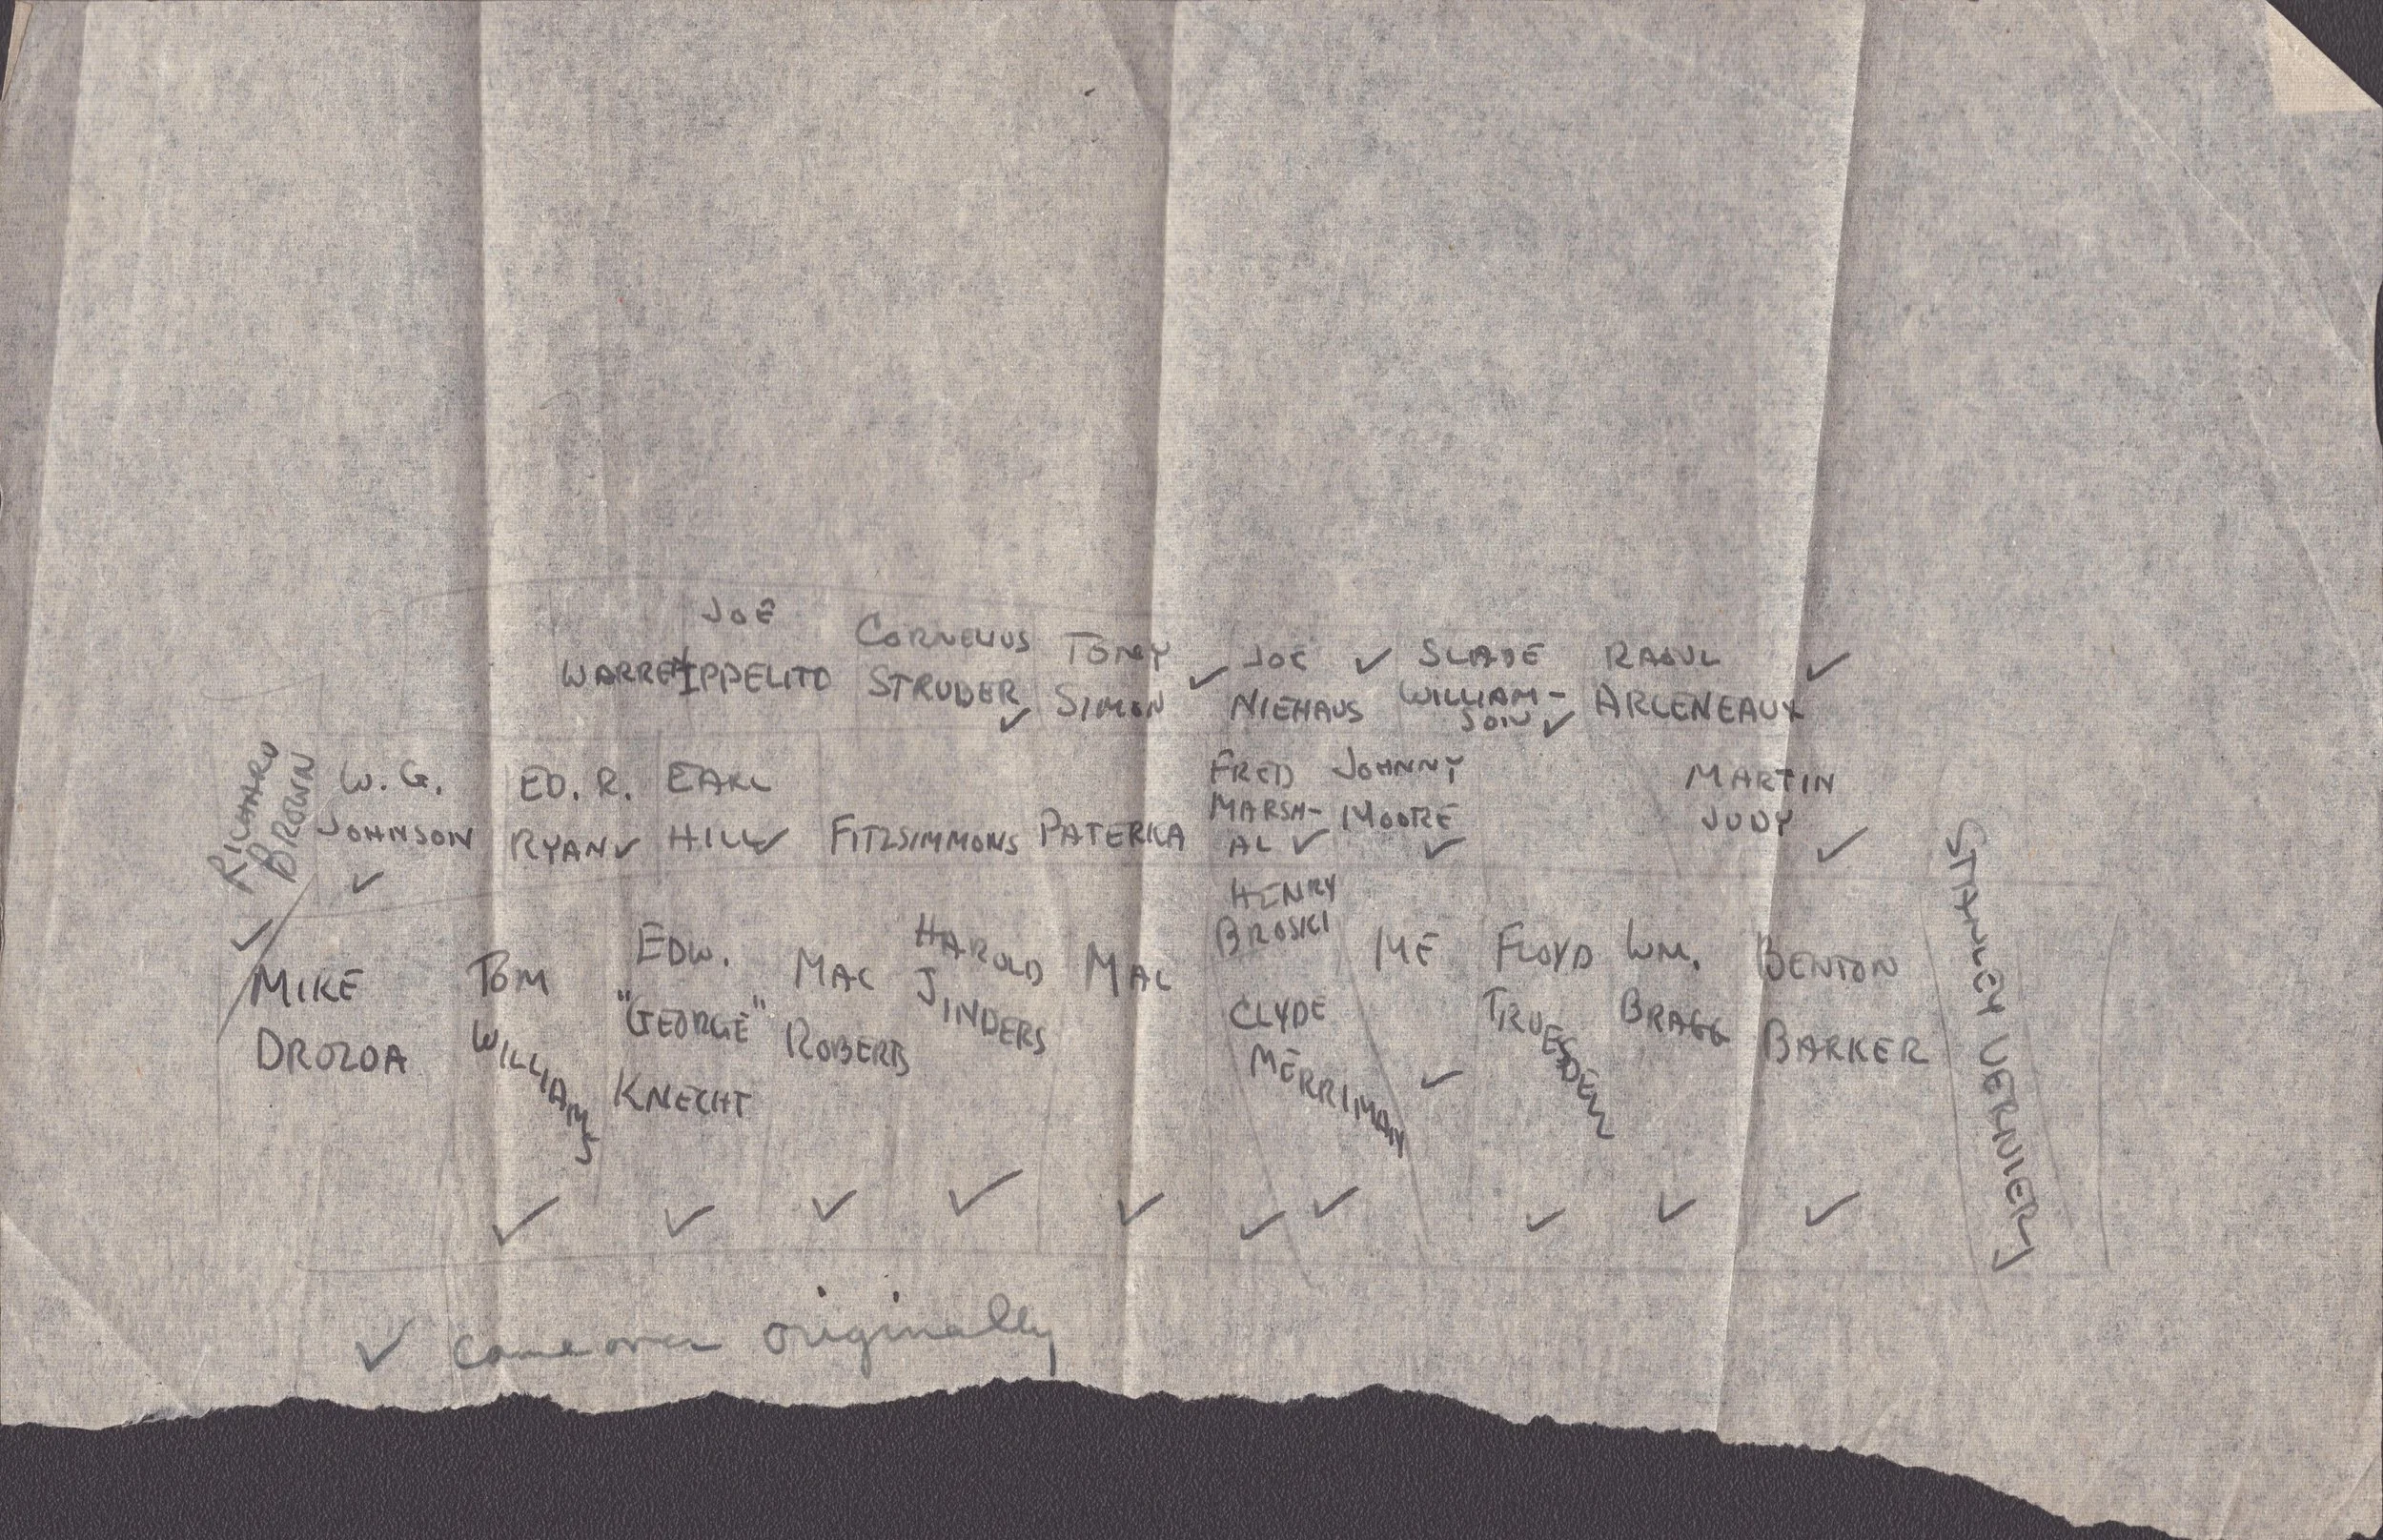 JOE CORNELIUS TONY JOE ✓ SLADE RAOUL ✓
WARREN IPPELITO STRUBER ✓ SIMON ✓ NIEHAUS WILLIAM-
SON ✓ ARCENEAUX
RICHARD
BROWN ✓
W. G. ED. R. EARL FRED JOHNNY MARTIN
JOHNSON ✓ RYAN ✓ HILL ✓ FITZSIMMONS PATERKA MARSH- MOORE ✓ JUDY ✓
AL ✓
HENRY
BROSKI
MIKE TOM EDW. MAC HAROLD MAC CLYDE ME FLOYD WM. BENTON
DROZDA WILLIAMS "GEORGE" ROBERTS JINDERS MERRIMAN ✓ TRUESDELL BRAGG BARKER
KNECHT
STANLEY VERNIER
✓ ✓ ✓ ✓ ✓ ✓ ✓ ✓ ✓ ✓
✓ came over originally